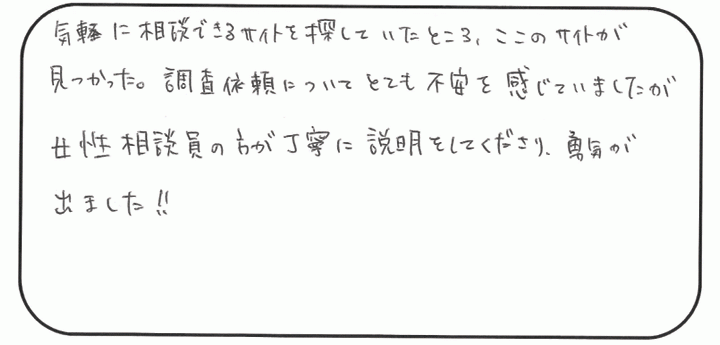 気軽に相談できるサイトを探していたところ、ここのサイトが
見つかった。調査依頼についてとても不安を感じていましたが
女性相談員の方が丁寧に説明をしてくださり、勇気が
出ました!!